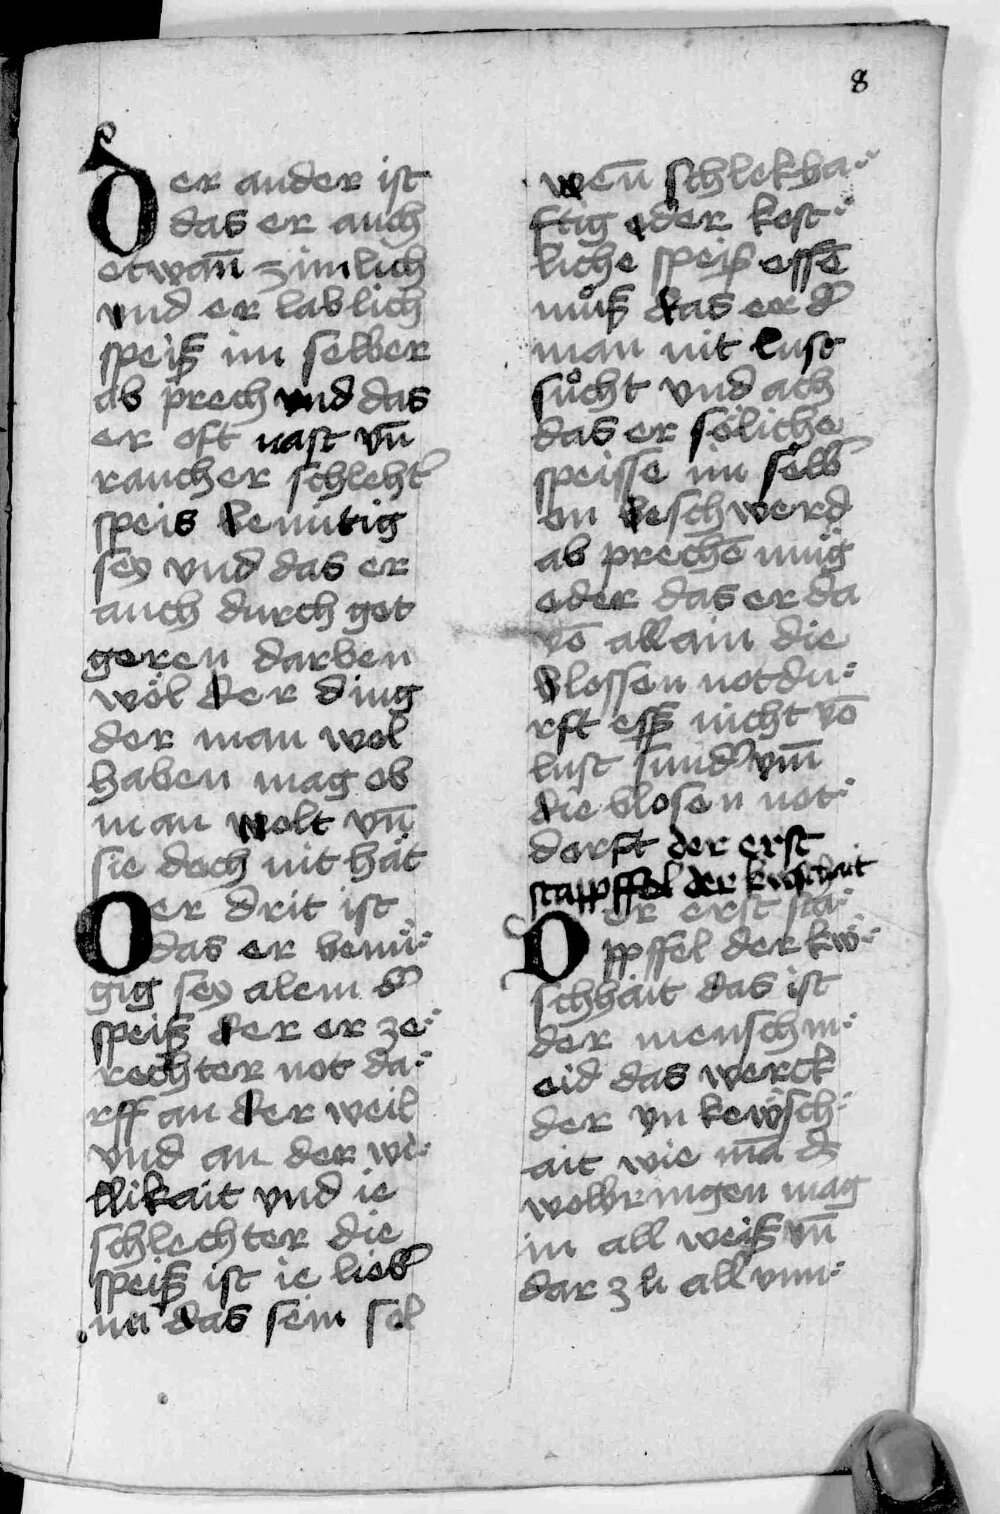 8
Der ander ist
das er auch
etwan̄ zimlich
vnd er lablich
speiß im selber
ab prech vnd das
er oft nast vn̄
raucher schleht͛
speis benuͤtig
sey vnd das er
auch durch got
geren darben
woͤl der ding
der man wol
haben mag ob
man wolt vn̄
sie doch nit hat
Der drit ist
das er benuͤ⸗
gig sey alem d͛
speiß der er ze⸗
rechter not da⸗
rff an der weil
vnd an der wi⸗
llikait vnd ie
schlechter die
speiß ist ie lieb͛
im das sein sol
wen̄ schlekha⸗
ftig oder kost⸗
liche speiß essē
muͦß das er d͛
man nit lust
suͦcht vnd ach
das er soͤliche
speisse im selb͛
on beschwerd
ab prechē muͤg
oder das er da
vō allain die
blossen notdu⸗
rft eß nicht vō
lust sund͛ vm̄
die blosen not⸗
dorft der erst
stappffel der kuschait
Der erst sta⸗
ppffel der kw̋⸗
schhait das ist
der mensch m⸗
eid das werck
der vn kew̋sch⸗
ait wie mā d͛
wolbringen mag
in all weiß vn̄
dar zuͦ all vnn⸗